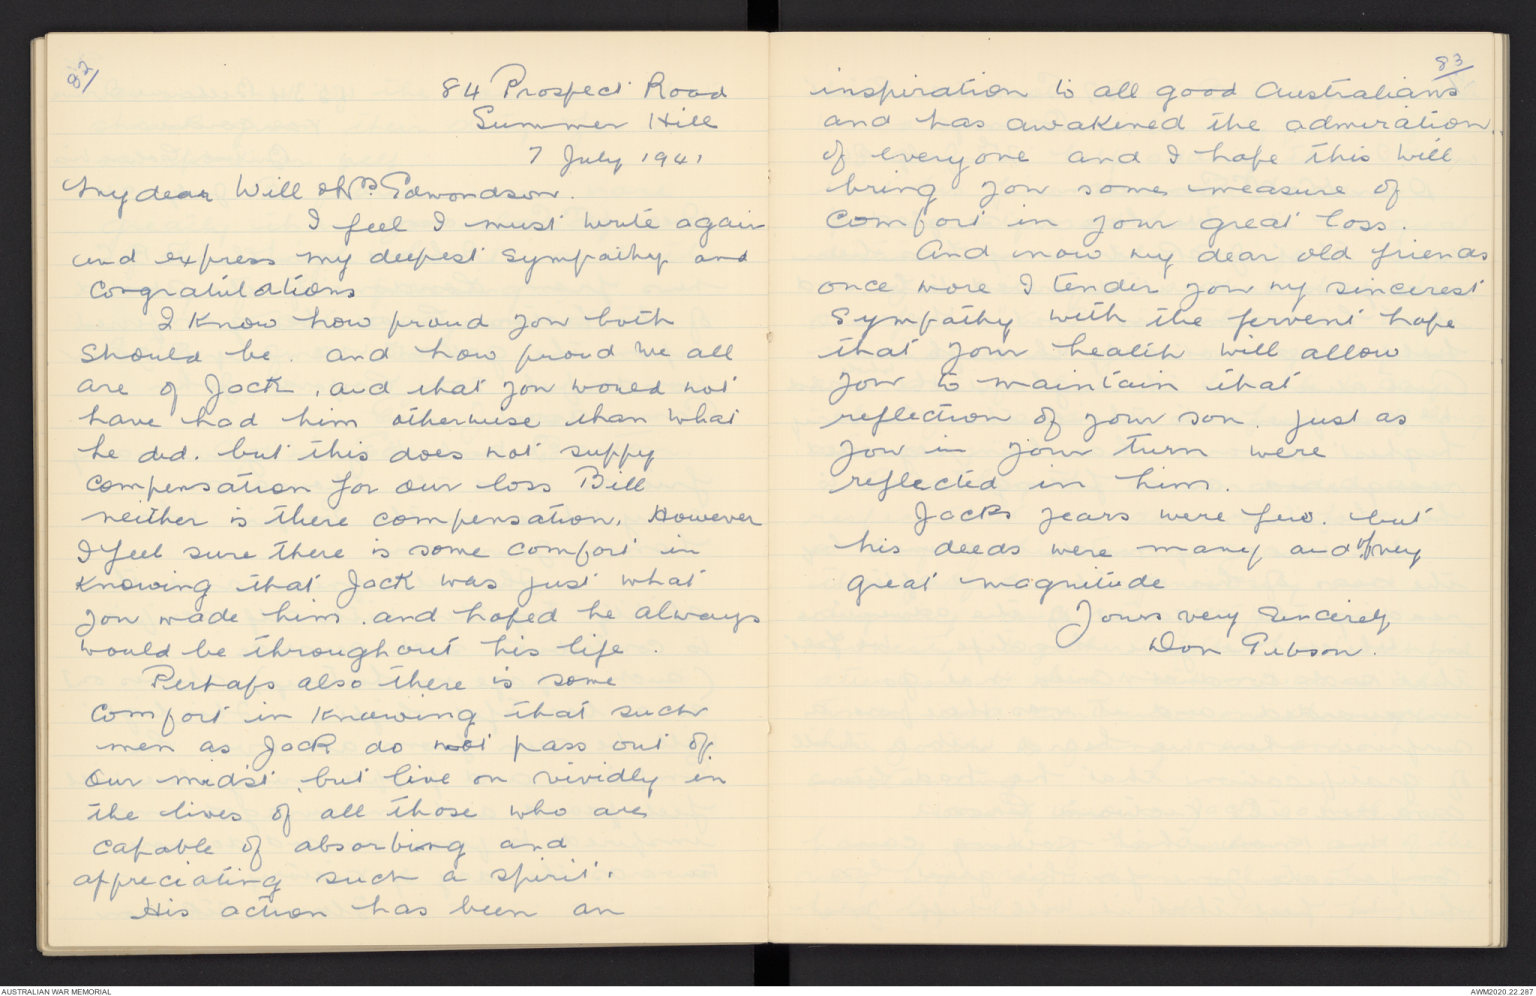 82/
84 Prospect Road
Summer Hill
7 July 1941
My dear Will & Mrs Edmondson.
I feel I must write again
and express my deepest sympathy and
congratulations
I know how proud you both
should be. and how proud we all
are of Jack, and that you would not
have had him otherwise than what
he did. but this does not suppy
compensation for our loss Bill
neither is there compensation. However
I feel sure there is some comfort in
knowing that Jack was just what
you made him. and hoped he always
would be throughout his life.
Perhaps also there is some
comfort in knowing that such
men as Jack do not pass out of
our midst, but live on vividly in
the lives of all those who are
capable of absorbing and
appreciating such a spirit.
His action has been an
83
inspiration to all good Australians
and has awakened the admiration
of everyone and I hope this will
bring you some measure of
comfort in your great loss.
And now my dear old friends
once more I tender you my sincerest
sympathy with the fervent hope
that your health will allow
you to maintain that
reflection of your son. just as
you in your turn were
reflected in him.
Jacks years were few. but
his deeds were many and of very
great magnitude
Yours very sincerely
Don Gibson.
AUSTRALIAN WAR MEMORIAL
AWM2020.22.287